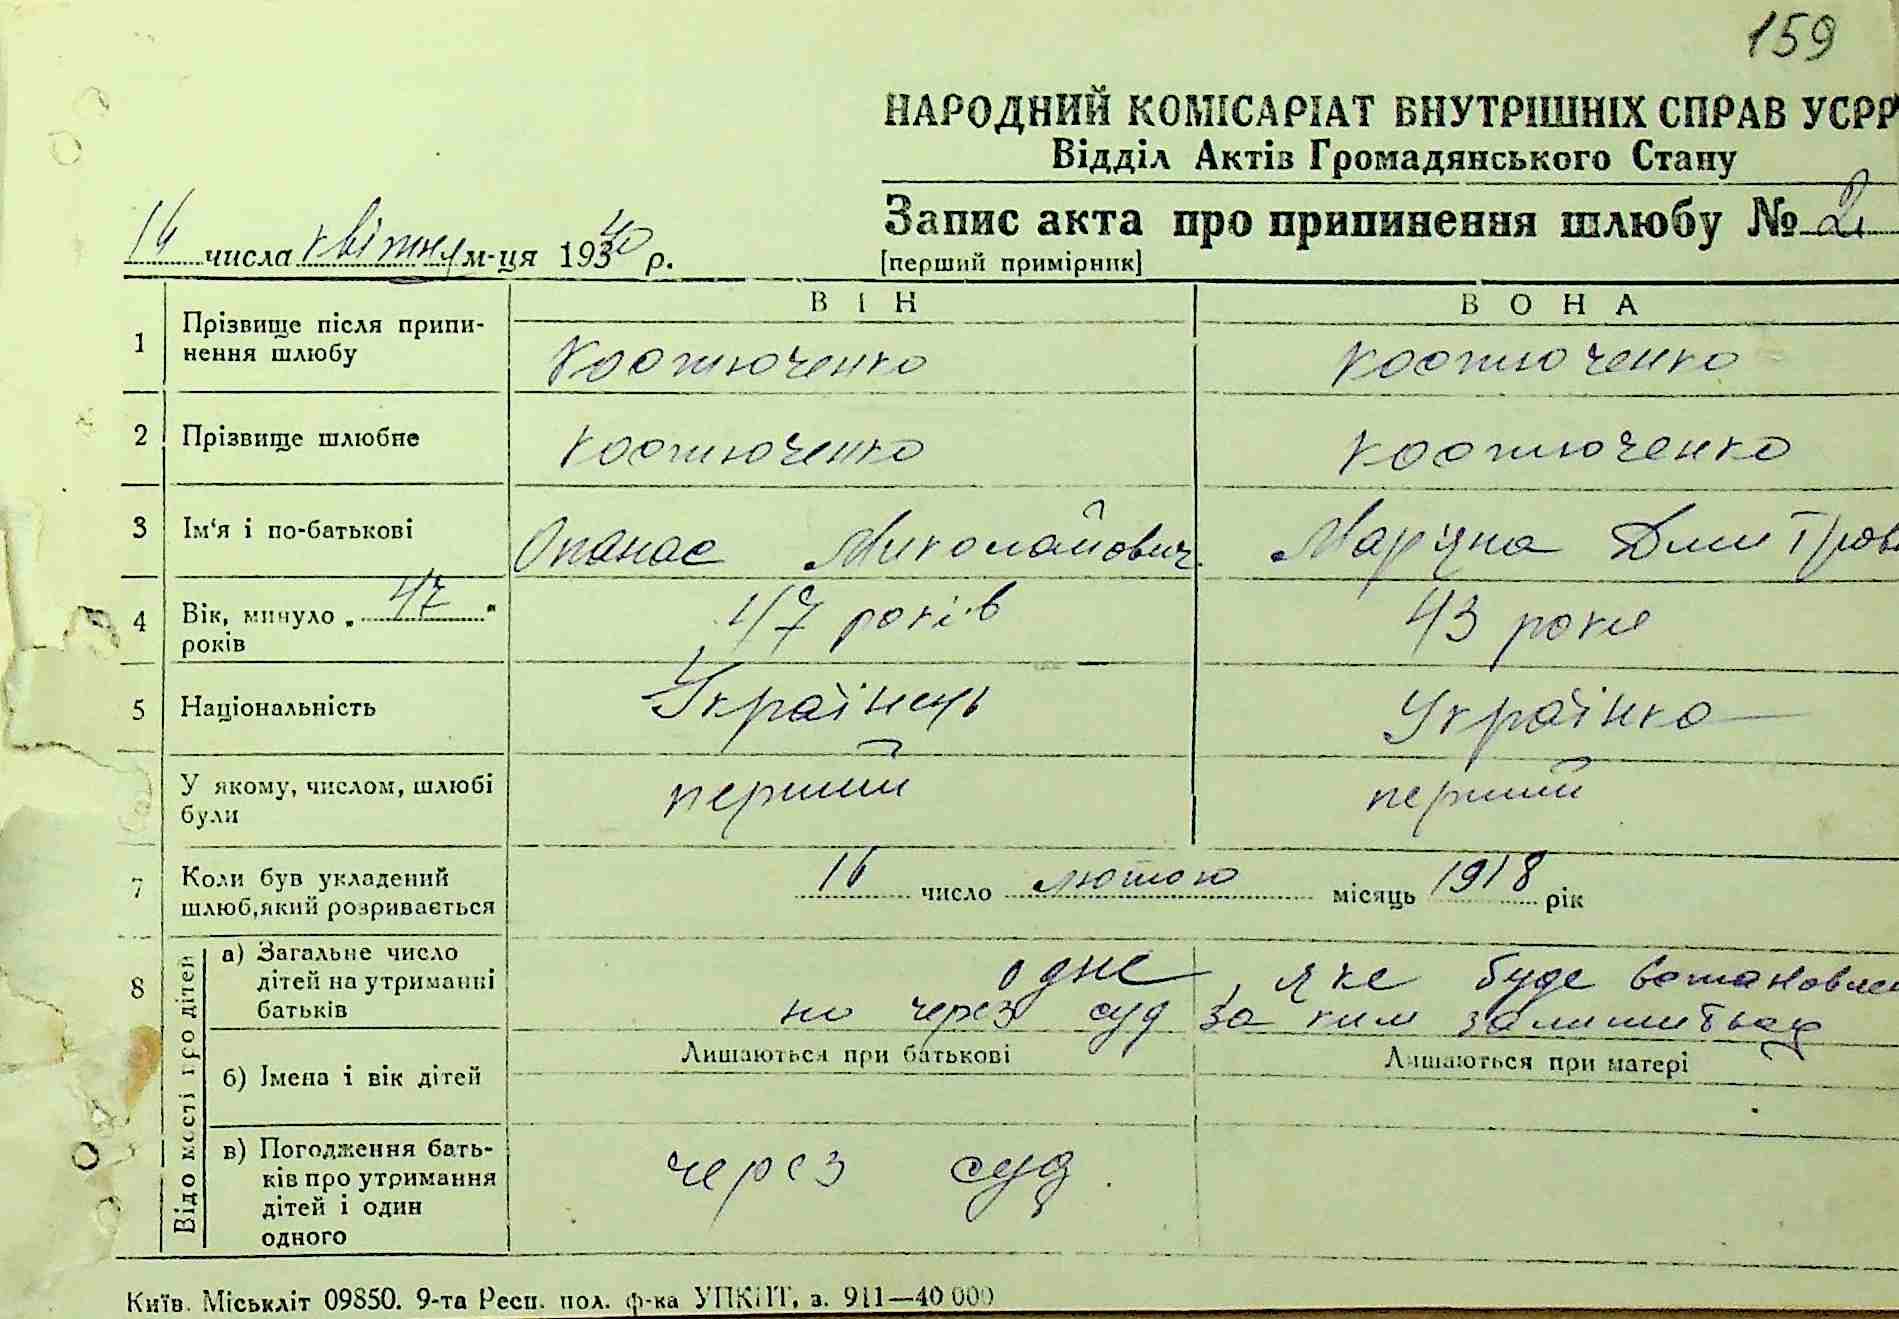 159
НАРОДНИЙ КОМІСАРІАТ ВНУТРІШНІХ СПРАВ УСРР
Відділ Актів Громадянського Стану
Запис акта про припинення шлюбу № 2
[перший примірник]
16 числа квітня м-ця 1940 р.
ВІН ВОНА
1 Прізвище після припи-
нення шлюбу
Костюченко Костюченко
2 Прізвище шлюбне Костюченко Костюченко
3 Ім'я і по-батькові Опанас Миколайович Мар'яна Дмитров
4 Вік, минуло „47“
років
47 років 43 роки
5 Національність Українець Українка
У якому, числом, шлюбі
були
перший перший
7 Коли був укладений
шлюб, який розривається
16 число лютого місяць 1918 рік
8 Відомості про дітей
а) Загальне число
дітей на утриманні
батьків
одне, яке буде встановлен
но через суд за ким залишиться
б) Імена і вік дітей
Лишаються при батькові Лишаються при матері
в) Погодження бать-
ків про утримання
дітей і один
одного
через суд.
Київ. Міськліт 09850. 9-та Респ. пол. ф-ка УПКНТ, з. 911—40 000